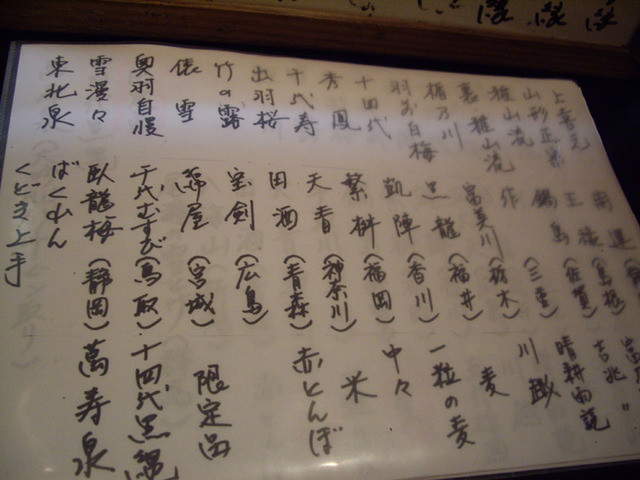 上喜元
山形正宗
雅山流
裏雅山流
楯乃川
羽前白梅
十四代
秀鳳
千代寿
出羽桜
竹の露
俵雪
奥羽自慢
雪漫々
東北泉
ばくれん
くどき上手
王祿（島根）
（佐賀）
錫（三重）
作
富美川（栃木）
黒龍（福井）
凱陣（香川）
繁桝（福岡）
天青（神奈川）
田酒（青森）
宝剣（広島）
（宮城）
千代むすび（鳥取）
臥龍梅（静岡）
吉兆〃
晴耕雨読
川越
麦
一粒の麦
中々
米
赤とんぼ
限定品
十四代黒縄
萬寿泉